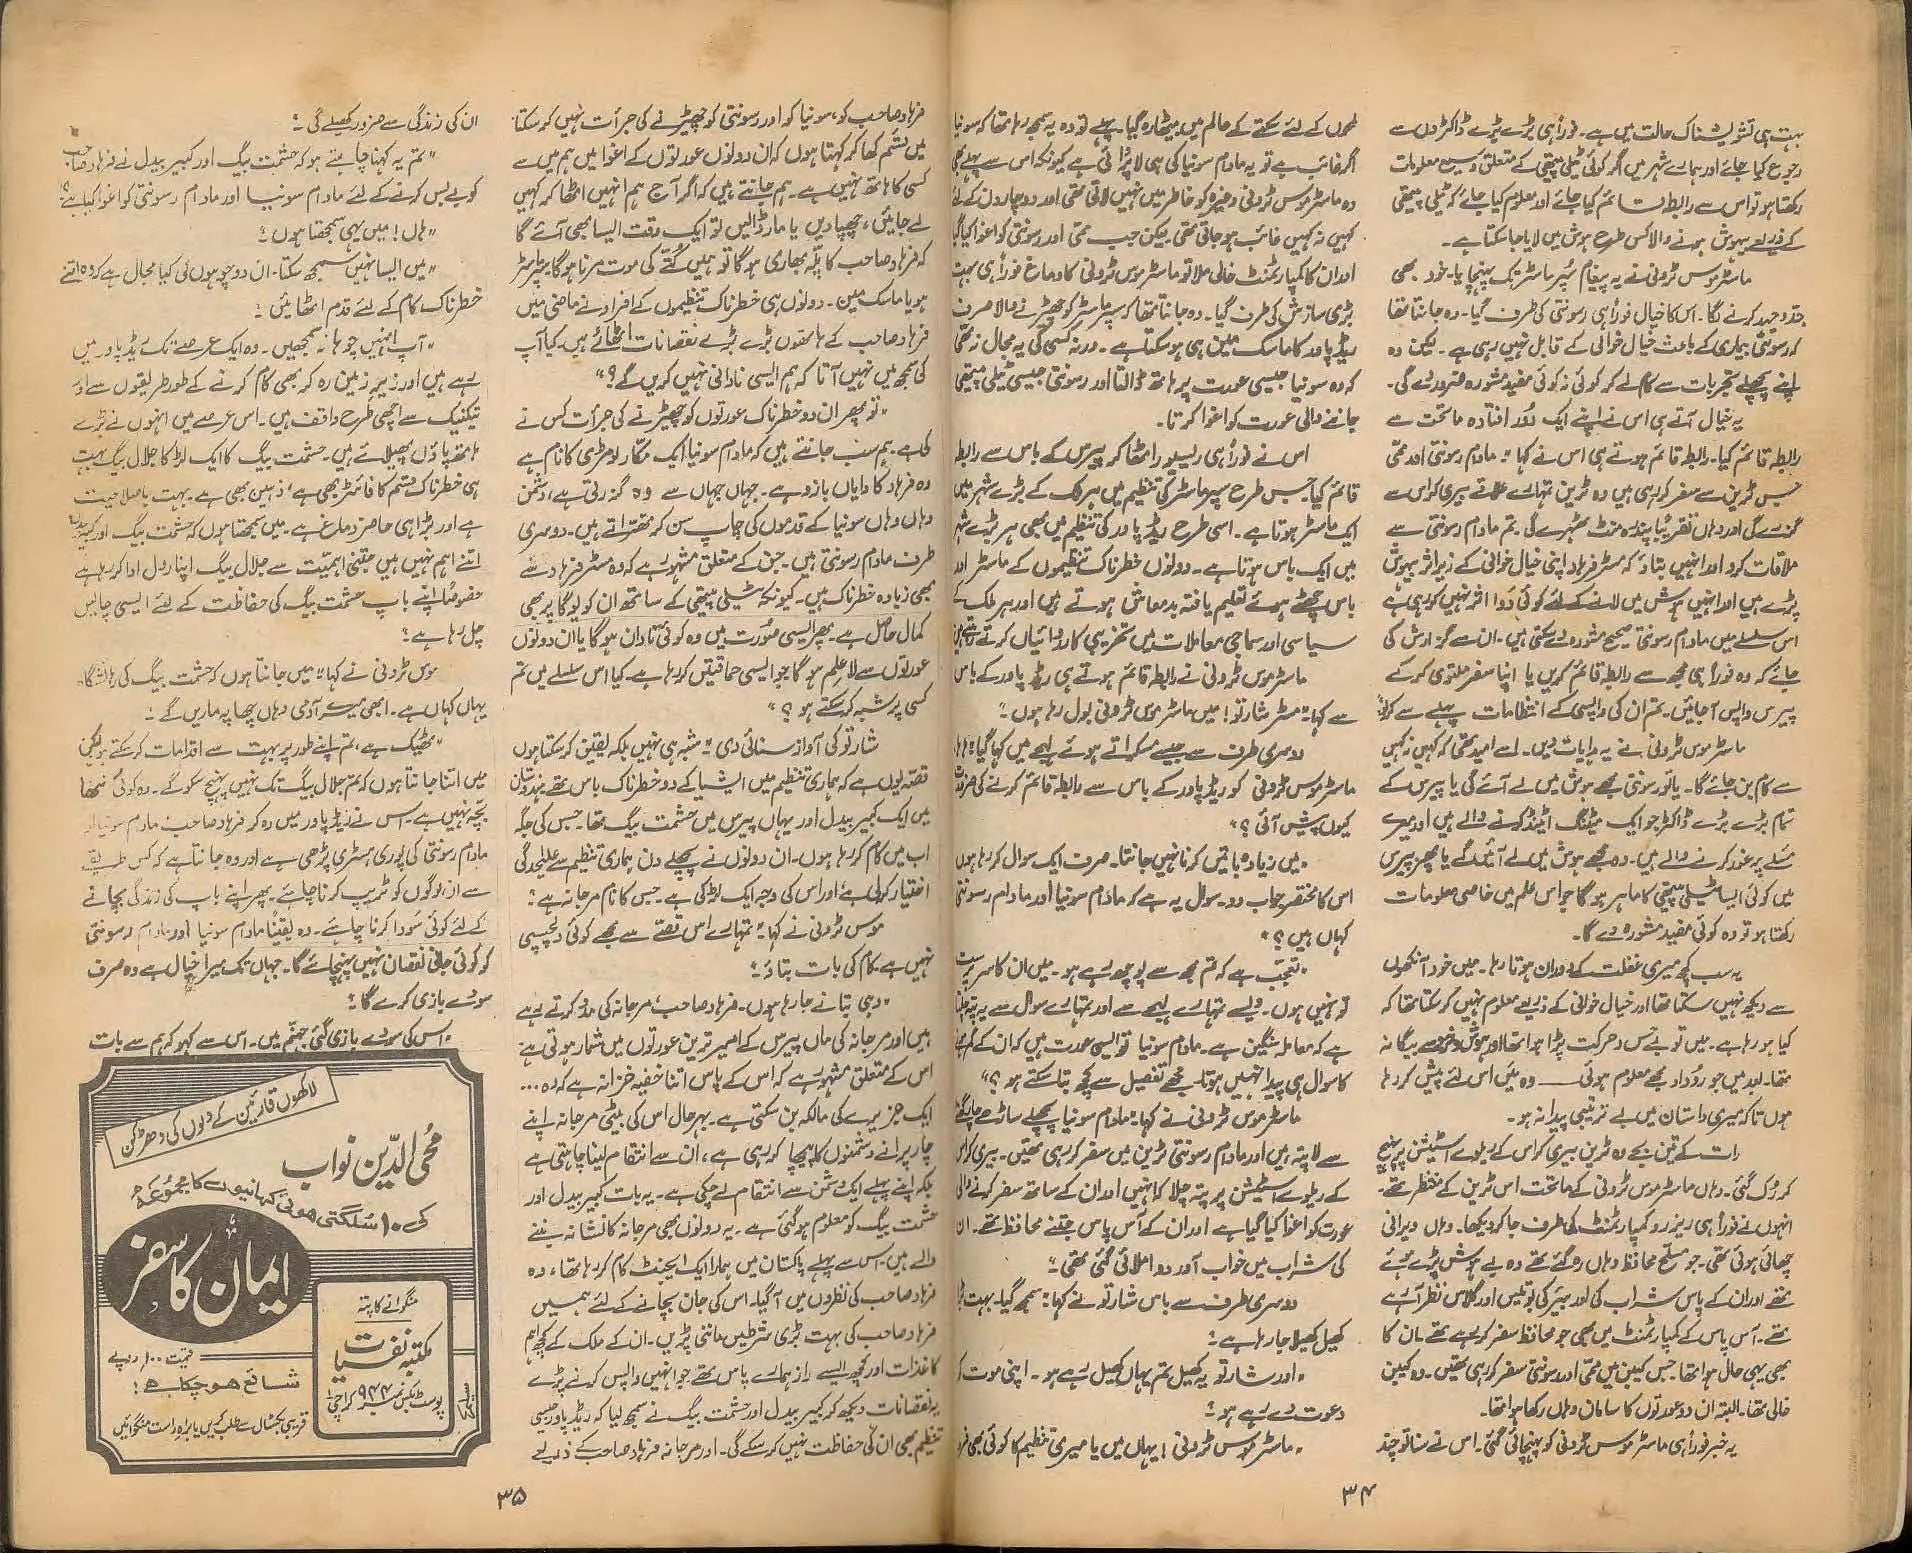 بہت ہی تشویشناک حالت میں ہے۔ فوراً ہی بڑے بڑے ڈاکٹروں سے
رجوع کیا جائے اور ہمارے شہر میں اگر کوئی ٹیلی پیتھی کے متعلق وسیع معلومات
رکھتا ہو تو اس سے رابطہ قائم کیا جائے اور معلوم کیا جائے کہ ٹیلی پیتھی
کے ذریعے بیہوش ہونے والا کس طرح ہوش میں لایا جا سکتا ہے۔
ماسٹر موس ٹرونی نے یہ پیغام سُپر ماسٹر تک پہنچایا۔ خود بھی
جدوجہد کرنے لگا۔ اس کا خیال فوراً ہی رسونتی کی طرف گیا۔ وہ جانتا تھا
کہ رسونتی بیماری کے باعث خیال خوانی کے قابل نہیں رہی ہے۔ لیکن وہ
اپنے پچھلے تجربات سے کام لے کر کوئی نہ کوئی مفید مشورہ ضرور دے گی۔
یہ خیال آتے ہی اس نے اپنے ایک دُور افتادہ ماتحت سے
رابطہ قائم کیا۔ رابطہ قائم ہوتے ہی اس نے کہا "مادام رسونتی اور ممّی
جس ٹرین سے سفر کر رہی ہیں وہ ٹرین تمہارے علاقے بیری کراس سے
گزرے گی اور وہاں تقریباً پندرہ منٹ ٹھہرے گی۔ تم مادام رسونتی سے
ملاقات کرو اور انہیں بتاؤ کہ مسٹر فرہاد اپنی خیال خوانی کے زیر اثر بیہوش
پڑے ہیں اور انہیں ہوش میں لانے کے لئے کوئی دَوا اثر نہیں کر رہی ہے
اس سلسلے میں مادام رسونتی صحیح مشورہ دے سکتی ہیں۔ ان سے گزارش کی
جائے کہ وہ فوراً ہی مجھ سے رابطہ قائم کریں یا اپنا سفر ملتوی کر کے
پیرس واپس آ جائیں۔ تم ان کی واپسی کے انتظامات پہلے سے کر لو"
ماسٹر موس ٹرونی نے یہ ہدایات دیں۔ اسے امید تھی کہ کہیں نہ کہیں
سے کام بن جائے گا۔ یا تو رسونتی مجھے ہوش میں لے آئے گی یا پیرس کے
تمام بڑے بڑے ڈاکٹر جو ایک میٹنگ اٹینڈ کرنے والے ہیں اور میرے
مسئلے پر غور کرنے والے ہیں۔ وہ مجھے ہوش میں لے آئیں گے یا پھر پیرس
میں کوئی ایسا ٹیلی پیتھی کا ماہر ہو گا جو اس علم میں خاصی معلومات
رکھتا ہو تو وہ کوئی مفید مشورہ دے گا۔
یہ سب کچھ میری غفلت کے دوران ہوتا رہا۔ میں خود آنکھوں
سے دیکھ نہیں سکتا تھا اور خیال خوانی کے ذریعے معلوم نہیں کر سکتا تھا کہ
کیا ہو رہا ہے۔ میں تو بے حس و حرکت پڑا ہوا تھا اور ہوش و خرد سے بیگانہ
تھا۔ بعد میں جو روداد مجھے معلوم ہوئی — وہ میں اس لئے پیش کر رہا
ہوں تاکہ میری داستان میں بے ترتیبی پیدا نہ ہو۔
رات کے تین بجے وہ ٹرین بیری کراس کے ریلوے اسٹیشن پر پہنچ
کر رُک گئی۔ وہاں ماسٹر موس ٹرونی کے ماتحت اس ٹرین کے منتظر تھے۔
انہوں نے فوراً ہی ریزرو کمپارٹمنٹ کی طرف جا کر دیکھا۔ وہاں ویرانی
چھائی ہوئی تھی۔ جو مسلّح محافظ وہاں رہ گئے تھے وہ بے ہوش پڑے ہوئے
تھے اور ان کے پاس شراب کی اور بیئر کی بوتلیں اور گلاس نظر آ رہے
تھے۔ آس پاس کے کمپارٹمنٹ میں بھی جو محافظ سفر کر رہے تھے۔ ان کا
بھی یہی حال ہوا تھا۔ جس کیبن میں ممّی اور رسونتی سفر کر رہی تھیں۔ وہ کیبن
خالی تھا۔ البتہ ان دو عورتوں کا سامان وہاں رکھا ہوا تھا۔
یہ خبر فوراً ہی ماسٹر موس ٹرونی کو پہنچائی گئی۔ اس نے سنا تو چند
لمحوں کے لئے سکتے کے عالم میں بیٹھا رہ گیا۔ پہلے تو وہ یہ سمجھ رہا تھا کہ سونیا
اگر غائب ہے تو یہ مادام سونیا کی ہی لاپرواہی ہے کیونکہ اس سے پہلے بھی
وہ ماسٹر موس ٹرونی وغیرہ کو خاطر میں نہیں لاتی تھی اور دو چار دن کے لئے
کہیں نہ کہیں غائب ہو جاتی تھی لیکن جب ممّی اور رسونتی کو اغوا کیا گیا
اور ان کا کمپارٹمنٹ خالی ملا تو ماسٹر موس ٹرونی کا دماغ فوراً ہی بہت
بڑی سازش کی طرف گیا۔ وہ جانتا تھا کہ سپر ماسٹر کو چھیڑنے والا صرف
ریڈ پاور کا ماسک مین ہی ہو سکتا ہے۔ ورنہ کسی کی یہ مجال نہ تھی
کہ وہ سونیا جیسی عورت پر ہاتھ ڈالتا اور رسونتی جیسی ٹیلی پیتھی
جاننے والی عورت کو اغوا کرتا۔
اس نے فوراً ہی ریسیور اٹھا کر پیرس کے باس سے رابطہ
قائم کیا۔ جس طرح سپر ماسٹر کی تنظیم میں ہر ملک کے بڑے شہر میں
ایک ماسٹر ہوتا ہے۔ اسی طرح ریڈ پاور کی تنظیم میں بھی ہر بڑے شہر
میں ایک باس ہوتا ہے۔ دونوں خطرناک تنظیموں کے ماسٹر اور
باس چھٹے ہوئے تعلیم یافتہ بدمعاش ہوتے ہیں اور ہر ملک کے
سیاسی اور سماجی معاملات میں تخریبی کارروائیاں کرتے رہتے ہیں
ماسٹر موس ٹرونی نے رابطہ قائم ہوتے ہی ریڈ پاور کے باس
سے کہا "مسٹر شارتو! میں ماسٹر موس ٹرونی بول رہا ہوں"
دوسری طرف سے جیسے مسکراتے ہوئے لہجے میں کہا گیا "
ماسٹر موس ٹرونی کو ریڈ پاور کے باس سے رابطہ قائم کرنے کی ضرورت
کیوں پیش آئی؟"
"میں زیادہ باتیں کرنا نہیں جانتا۔ صرف ایک سوال کر رہا ہوں
اس کا مختصر جواب دو۔ سوال یہ ہے کہ مادام سونیا اور مادام رسونتی
کہاں ہیں؟"
"تعجب ہے کہ تم مجھ سے پوچھ رہے ہو۔ میں ان کا سرپرست
تو نہیں ہوں۔ ویسے تمہارے لہجے سے اور تمہارے سوال سے پتہ چلتا
ہے کہ معاملہ سنگین ہے۔ مادام سونیا تو ایسی عورت ہیں کہ ان کے گم ہونے
کا سوال ہی پیدا نہیں ہوتا۔ مجھے تفصیل سے کچھ بتا سکتے ہو؟"
ماسٹر موس ٹرونی نے کہا "مادام سونیا پچھلے ساڑھے چار گھنٹے
سے لاپتہ ہیں اور مادام رسونتی ٹرین میں سفر کر رہی تھیں۔ بیری کراس
کے ریلوے اسٹیشن پر پتہ چلا کہ انہیں اور ان کے ساتھ سفر کرنے والی
عورت کو اغوا کیا گیا ہے اور ان کے آس پاس جتنے محافظ تھے۔ ان
کی شراب میں خواب آور دوا ملائی گئی تھی"
دوسری طرف سے باس شارتو نے کہا "سمجھ گیا۔ بہت بڑا
کھیل کھیلا جا رہا ہے"
"اور شارتو یہ کھیل تم یہاں کھیل رہے ہو۔ اپنی موت کو
دعوت دے رہے ہو"
"ماسٹر موس ٹرونی! یہاں میں یا میری تنظیم کا کوئی بھی فرد
۳۴
فرہاد صاحب کو، سونیا کو اور رسونتی کو چھیڑنے کی جرأت نہیں کر سکتا
میں قسم کھا کر کہتا ہوں کہ ان دونوں عورتوں کے اغوا میں ہم میں سے
کسی کا ہاتھ نہیں ہے۔ ہم جانتے ہیں کہ اگر آج ہم انہیں اٹھا کر کہیں
لے جائیں، چھپا دیں یا مار ڈالیں تو ایک وقت ایسا بھی آئے گا
کہ فرہاد صاحب کا پلّہ بھاری ہو گا تو ہمیں کُتّے کی موت مرنا ہو گا۔ سپر ماسٹر
ہو یا ماسک مین۔ دونوں ہی خطرناک تنظیموں کے افراد نے ماضی میں
فرہاد صاحب کے ہاتھوں بڑے بڑے نقصانات اٹھائے ہیں۔ کیا آپ
کی سمجھ میں نہیں آتا کہ ہم ایسی نادانی نہیں کریں گے؟"
"تو پھر ان دو خطرناک عورتوں کو چھیڑنے کی جرأت کس نے
کی ہے۔ ہم سب جانتے ہیں کہ مادام سونیا ایک مکّار لومڑی کا نام ہے
وہ فرہاد کا دایاں بازو ہے۔ جہاں جہاں سے وہ گزرتی ہے، دشمن
وہاں وہاں سونیا کے قدموں کی چاپ سن کر تھرّاتے ہیں۔ دوسری
طرف مادام رسونتی ہیں۔ جن کے متعلق مشہور ہے کہ وہ مسٹر فرہاد سے
بھی زیادہ خطرناک ہیں۔ کیونکہ ٹیلی پیتھی کے ساتھ ان کو یوگا پر بھی
کمال حاصل ہے۔ پھر ایسی صورت میں وہ کوئی نادان ہو گا یا ان دونوں
عورتوں سے لاعلم ہو گا جو ایسی حماقتیں کر رہا ہے۔ کیا اس سلسلے میں تم
کسی پر شبہ کر سکتے ہو؟"
شارتو کی آواز سنائی دی "شبہ ہی نہیں بلکہ یقین کر سکتا ہوں
قصّہ یوں ہے کہ ہماری تنظیم میں ایشیا کے دو خطرناک باس تھے ہندوستان
میں ایک کبیر بیدل اور یہاں پیرس میں حشمت بیگ تھا۔ جس کی جگہ
اب میں کام کر رہا ہوں۔ ان دونوں نے پچھلے دن ہماری تنظیم سے علیحدگی
اختیار کر لی ہے اور اس کی وجہ ایک لڑکی ہے۔ جس کا نام مرجانہ ہے"
موس ٹرونی نے کہا "تمہارے اس قصّے سے مجھے کوئی دلچسپی
نہیں ہے۔ کام کی بات بتاؤ"
"وہی بتانے جا رہا ہوں۔ فرہاد صاحب، مرجانہ کی مدد کرتے رہے
ہیں اور مرجانہ کی ماں پیرس کے امیر ترین عورتوں میں شمار ہوتی ہے
اس کے متعلق مشہور ہے کہ اس کے پاس اتنا خفیہ خزانہ ہے کہ وہ ...
ایک جزیرے کی مالکہ بن سکتی ہے۔ بہر حال اس کی بیٹی مرجانہ اپنے
چار پرانے دشمنوں کا پیچھا کر رہی ہے، ان سے انتقام لینا چاہتی ہے
بلکہ اپنے پہلے ایک دشمن سے انتقام لے چکی ہے۔ یہ بات کبیر بیدل اور
حشمت بیگ کو معلوم ہو گئی ہے۔ یہ دونوں بھی مرجانہ کا نشانہ بننے
والے ہیں۔ اس سے پہلے پاکستان میں ہمارا ایک ایجنٹ کام کر رہا تھا، وہ
فرہاد صاحب کی نظروں میں آ گیا۔ اس کی جان بچانے کے لئے ہمیں
فرہاد صاحب کی بہت بڑی شرطیں ماننی پڑیں۔ ان کے ملک کے کچھ اہم
کاغذات اور کچھ ایسے راز ہمارے پاس تھے جو انہیں واپس کرنے پڑے
یہ نقصانات دیکھ کر کبیر بیدل اور حشمت بیگ نے سمجھ لیا کہ ریڈ پاور جیسی
تنظیم بھی ان کی حفاظت نہیں کر سکے گی۔ اور مرجانہ فرہاد صاحب کے ذریعے
ان کی زندگی سے ضرور کھیلے گی"
"تم یہ کہنا چاہتے ہو کہ حشمت بیگ اور کبیر بیدل نے فرہاد صاحب
کو بے بس کرنے کے لئے مادام سونیا اور مادام رسونتی کو اغوا کیا ہے؟"
"ہاں! میں یہی سمجھتا ہوں"
"میں ایسا نہیں سمجھ سکتا۔ ان دو چوہوں کی کیا مجال ہے کہ وہ اتنے
خطرناک کام کے لئے قدم اٹھائیں"
"آپ انہیں چوہا نہ سمجھیں۔ وہ ایک عرصے تک ریڈ پاور میں
رہے ہیں اور زیرِ زمین رہ کر بھی کام کرنے کے طور طریقوں سے اور
تکنیک سے اچھی طرح واقف ہیں۔ اس عرصے میں انہوں نے بڑے
ہاتھ پاؤں پھیلائے ہیں۔ حشمت بیگ کا ایک لڑکا جلال بیگ بہت
ہی خطرناک قسم کا فائٹر بھی ہے، ذہین بھی ہے۔ بہت باصلاحیت
ہے اور بڑا ہی حاضر دماغ ہے۔ میں سمجھتا ہوں کہ حشمت بیگ اور کبیر بیدل
اتنے اہم نہیں ہیں جتنی اہمیت سے جلال بیگ اپنا رول ادا کر رہا ہے
خصوصاً اپنے باپ حشمت بیگ کی حفاظت کے لئے ایسی چالیں
چل رہا ہے"
موس ٹرونی نے کہا "میں جانتا ہوں کہ حشمت بیگ کی رہائشگاہ
یہاں کہاں ہے۔ ابھی میرے آدمی وہاں چھاپہ ماریں گے"
"ٹھیک ہے، تم اپنے طور پر بہت سے اقدامات کر سکتے ہو لیکن
میں اتنا جانتا ہوں کہ تم جلال بیگ تک نہیں پہنچ سکو گے۔ وہ کوئی ننھا
بچّہ نہیں ہے۔ اس نے ریڈ پاور میں رہ کر فرہاد صاحب، مادام سونیا اور
مادام رسونتی کی پوری ہسٹری پڑھی ہے اور وہ جانتا ہے کہ کس طریقے
سے ان لوگوں کو ٹریپ کرنا چاہئے۔ پھر اپنے باپ کی زندگی بچانے
کے لئے کوئی سَودا کرنا چاہئے۔ وہ یقیناً مادام سونیا اور مادام رسونتی
کو کوئی جانی نقصان نہیں پہنچائے گا۔ جہاں تک میرا خیال ہے وہ صرف
سودے بازی کرے گا"
"اس کی سودے بازی گئی جہنّم میں۔ اس سے کہو کہ ہم سے بات
لاکھوں قارئین کے دلوں کی دھڑکن
محی الدّین نواب
کی ۱۰ سُلگتی ہوئی کہانیوں کا مجموعہ
ایمان کا سفر
منگوانے کا پتہ
مکتبہ نفسیات
پوسٹ بکس نمبر ۹۴۴ کراچی ۱
قیمت ۱۰۰ روپے
شائع ہو چکا ہے!
قریبی بکسٹال سے طلب کریں یا براہِ راست منگوائیں
۳۵